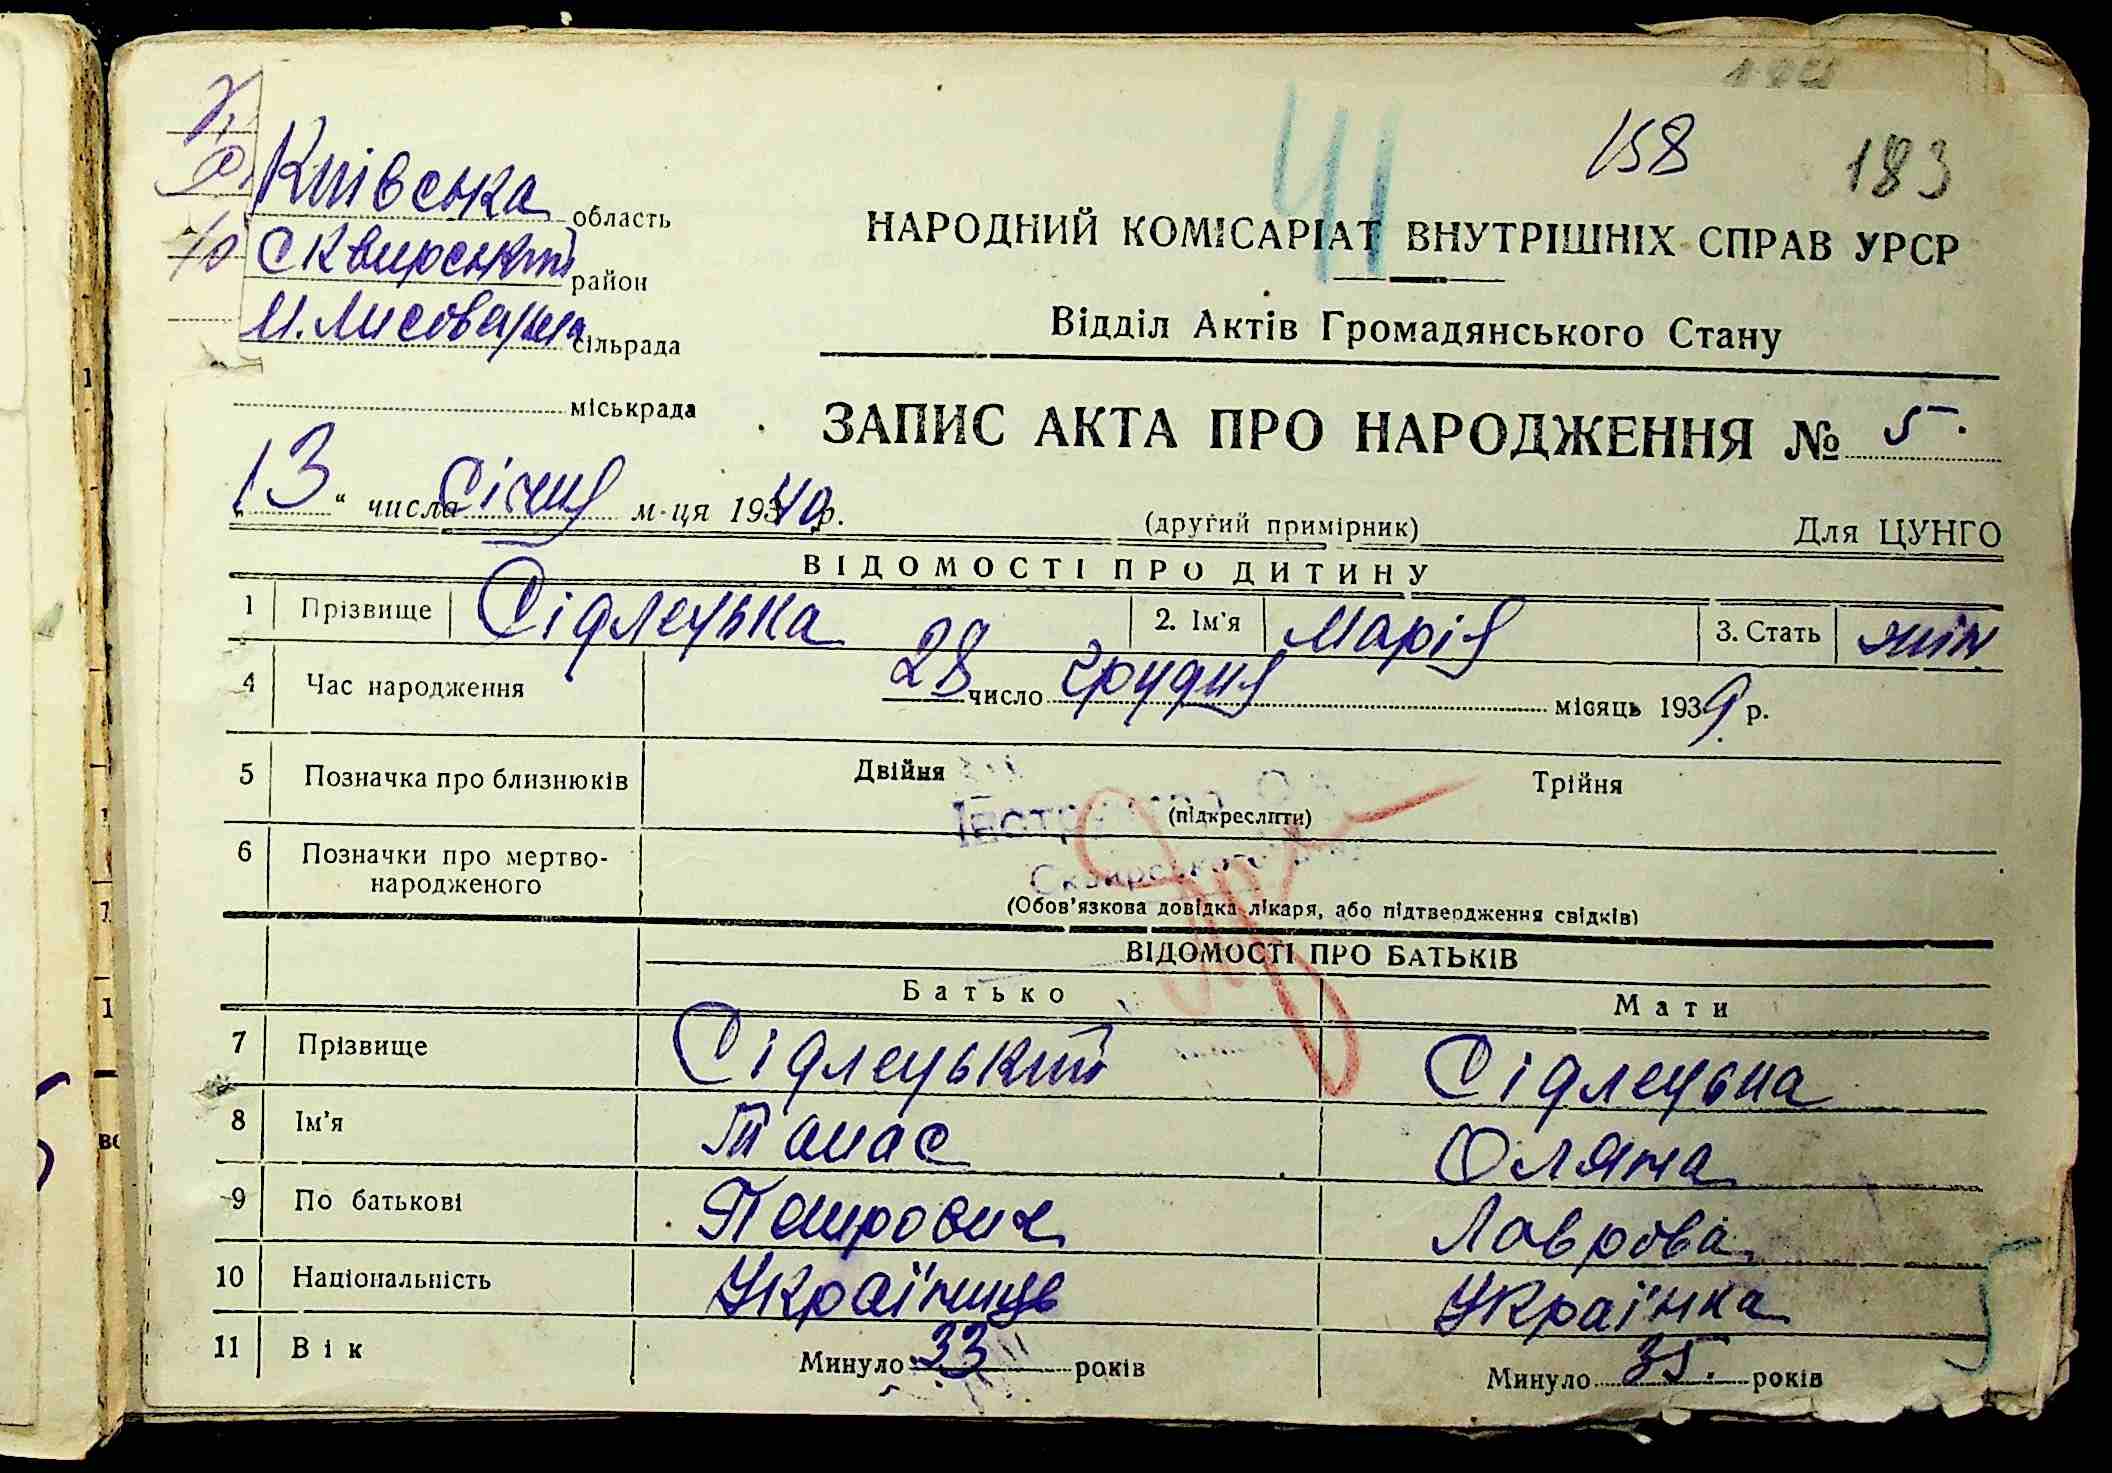 41 158 183
Київська область
Сквирський район
М. Лисовецька сільрада
міськрада
НАРОДНИЙ КОМІСАРІАТ ВНУТРІШНІХ СПРАВ УРСР
Відділ Актів Громадянського Стану
ЗАПИС АКТА ПРО НАРОДЖЕННЯ № 5.
„13“ числа Січня м-ця 1940 р.
(другий примірник)
Для ЦУНГО
ВІДОМОСТІ ПРО ДИТИНУ
1 Прізвище Сідлецька 2. Ім'я Марія 3. Стать жін
4 Час народження 28 число грудня місяць 1939 р.
5 Позначка про близнюків Двійня Трійня
(підкреслити)
6 Позначки про мертво-
народженого
(Обов'язкова довідка лікаря, або підтвердження свідків)
ВІДОМОСТІ ПРО БАТЬКІВ
Батько Мати
7 Прізвище Сідлецький Сідлецька
8 Ім'я Танас Оляна
9 По батькові Петрович Лаврова
10 Національність Українець Українка
11 Вік Минуло 33 років Минуло 35. років